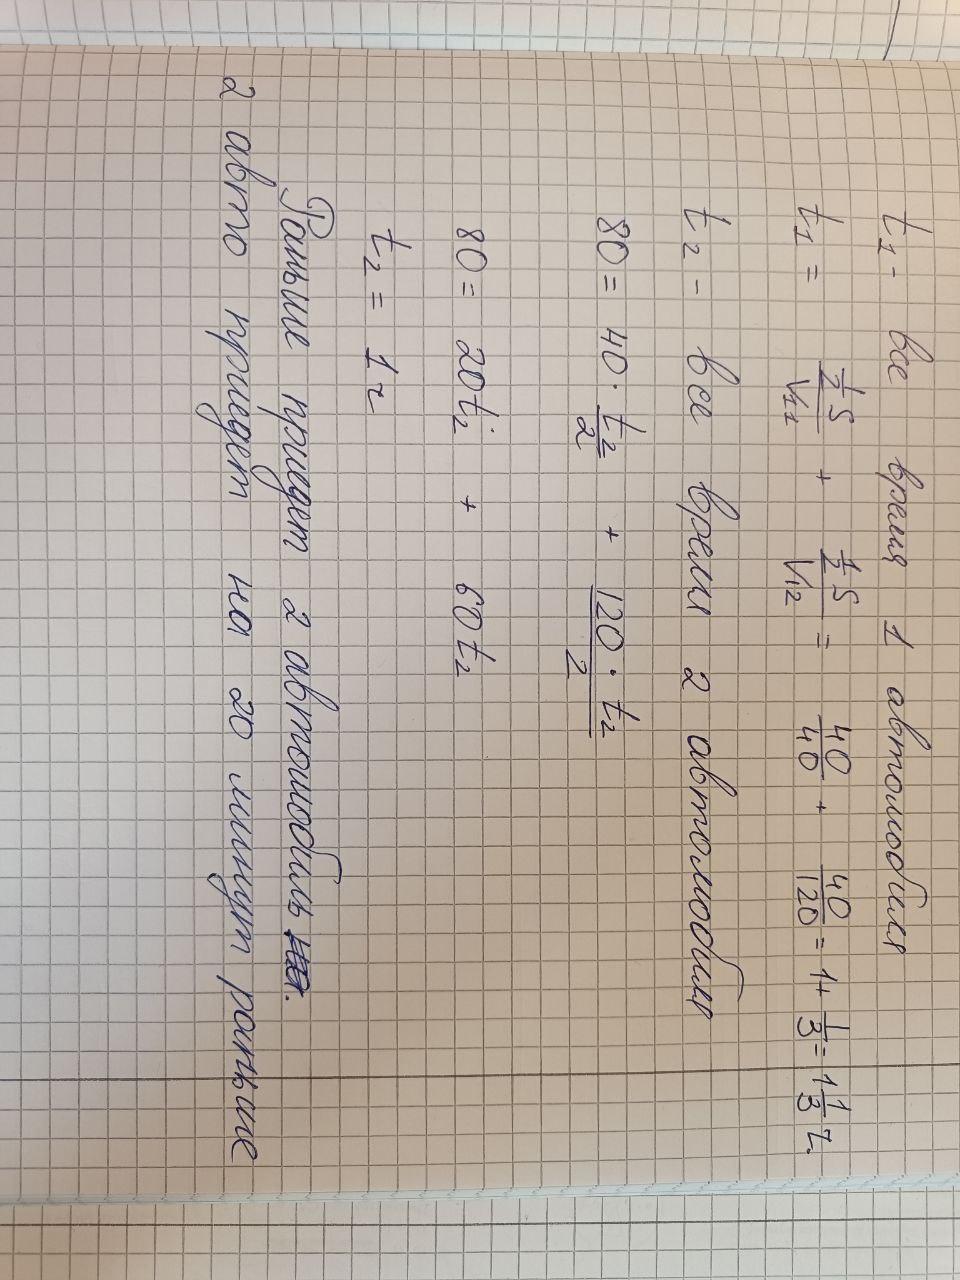 t₁ - все время 1 автомобиля
t₁ = ½S/V₁₁ + ½S/V₁₂ = 40/40 + 40/120 = 1 + 1/3 = 1 1/3 г.
t₂ - все время 2 автомобиля
80 = 40 · t₂/2 + 120 · t₂/2
80 = 20t₂ + 60t₂
t₂ = 1 г
Раньше приедет 2 автомобиль.
2 авто приедет на 20 минут раньше